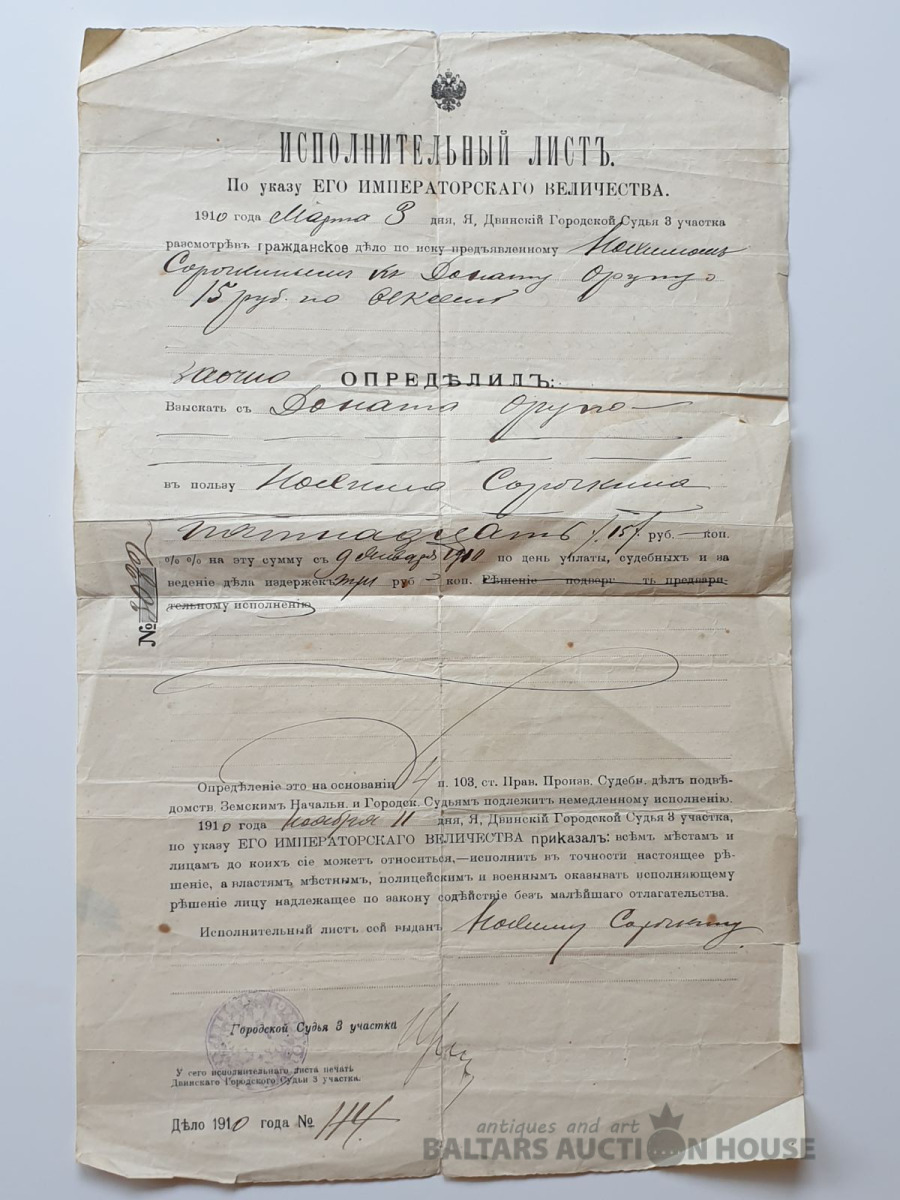 ИСПОЛНИТЕЛЬНЫЙ ЛИСТЪ.
По указу ЕГО ИМПЕРАТОРСКАГО ВЕЛИЧЕСТВА.
1910 года Марта 3 дня, Я, Двинскій Городской Судья 3 участка
разсмотрѣвъ гражданское дѣло по иску предъявленному
Сорочкинымъ къ Донату
15 руб. по
заочно ОПРЕДѢЛИЛЪ:
Взыскать съ Доната
въ пользу Сорочкина
пятнадцать /15/ руб. — коп.
% % на эту сумму съ 9 Января 1910 по день уплаты, судебныхъ и за
веденіе дѣла издержекъ три руб — коп. Рѣшеніе подверг ть предвари-
тельному исполненію
№
Опредѣленіе это на основаніи 4 п. 103, ст. Прав. Произв. Судебн. дѣлъ подвѣ-
домств. Земскимъ Начальн. и Городск. Судьямъ подлежитъ немедленному исполненію.
1910 года Ноября 11 дня, Я, Двинскій Городской Судья 3 участка,
по указу ЕГО ИМПЕРАТОРСКАГО ВЕЛИЧЕСТВА приказалъ: всѣмъ мѣстамъ и
лицамъ до коихъ сіе можетъ относиться,—исполнить въ точности настоящее рѣ-
шеніе, а властямъ, мѣстнымъ, полицейскимъ и военнымъ оказывать исполняющему
рѣшеніе лицу надлежащее по закону содѣйствіе безъ малѣйшаго отлагательства.
Исполнительный листъ сей выданъ Сорочкину
Городской Судья 3 участка
У сего исполнительнаго листа печать
Двинскаго Городского Судьи 3 участка.
Дѣло 1910 года № 114.
antiques and art
BALTARS AUCTION HOUSE